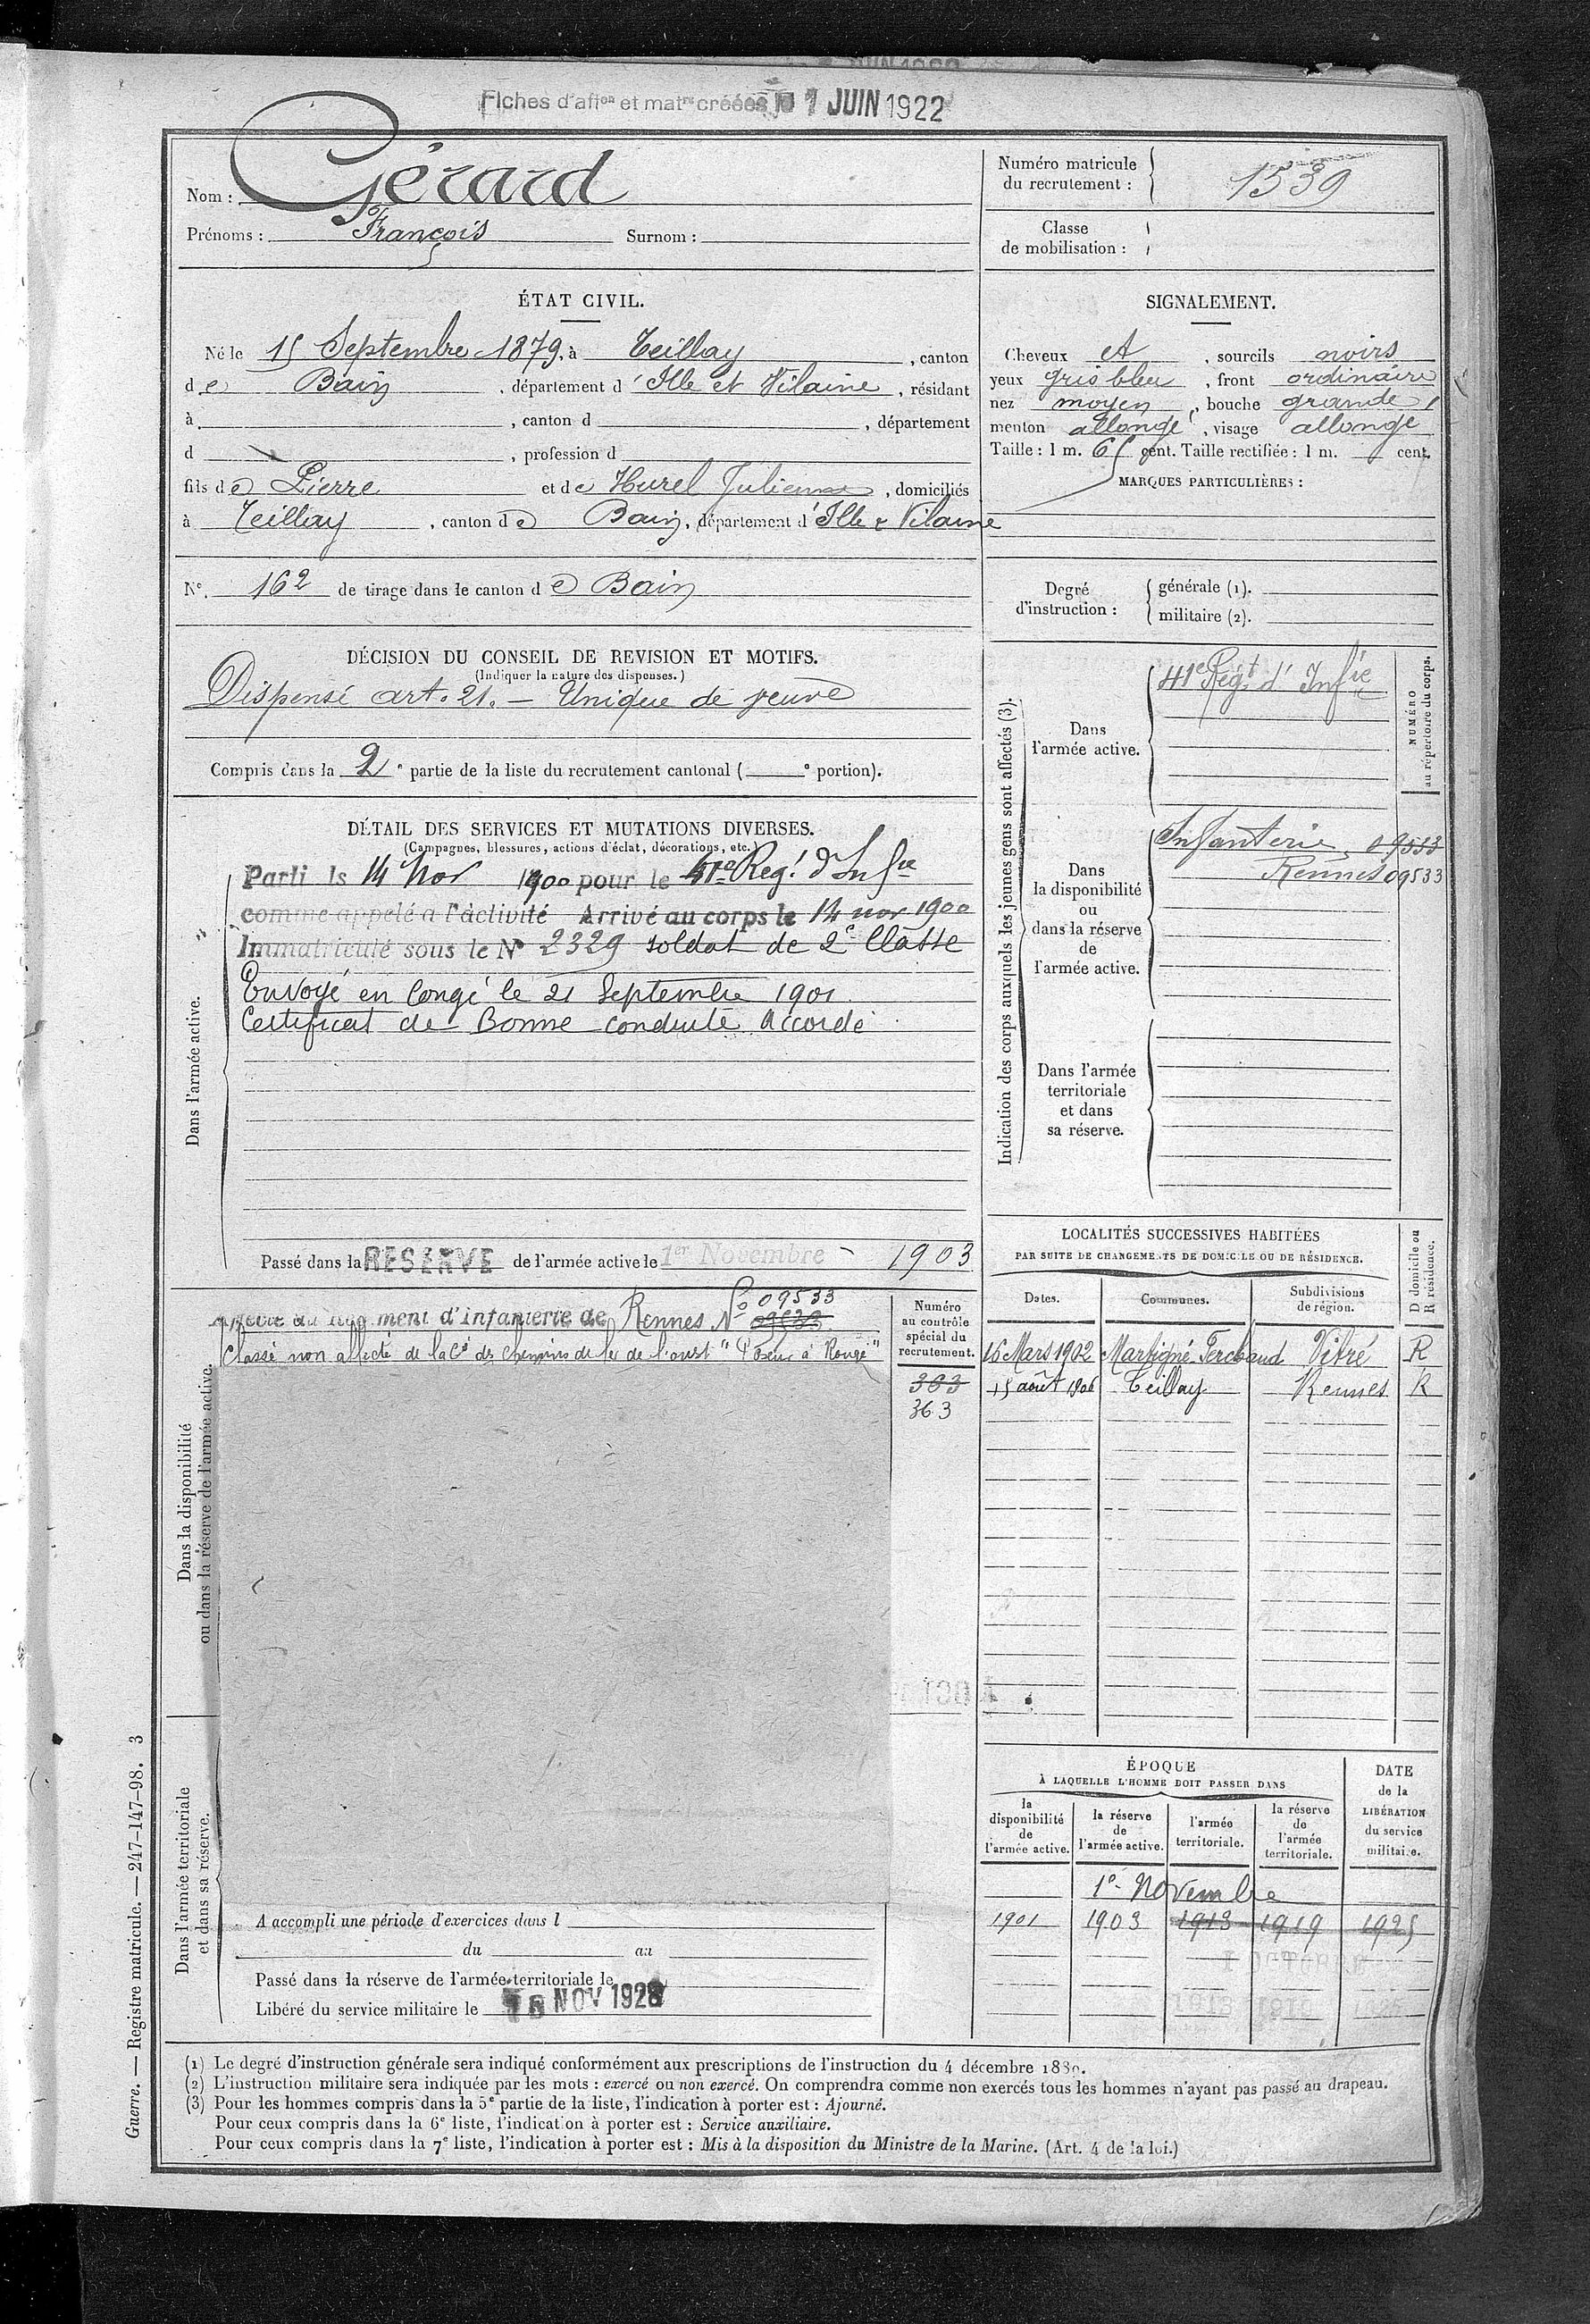 Fiches d'afion et matre créées 1 JUIN 1922
Nom : Gérard
Prénoms : François Surnom :
Numéro matricule du recrutement : 1539
Classe de mobilisation :
ÉTAT CIVIL.
Né le 15 Septembre 1879, à Teillay, canton
de Bain, département d'Ille et Vilaine, résidant
à , canton d , département
d , profession d
fils de Pierre et de Hurel Julienne, domiciliés
à Teillay, canton de Bain, département d'Ille & Vilaine
N°. 162 de tirage dans le canton de Bain
SIGNALEMENT.
Cheveux et , sourcils noirs
yeux gris bleu , front ordinaire
nez moyen , bouche grande
menton allongé , visage allongé
Taille : 1 m. 65 cent. Taille rectifiée : 1 m. cent.
MARQUES PARTICULIÈRES :
Degré d'instruction : générale (1).
militaire (2).
DÉCISION DU CONSEIL DE REVISION ET MOTIFS.
(Indiquer la nature des dispenses.)
Dispensé art. 21. — Unique de veuve
Compris dans la 2e partie de la liste du recrutement cantonal ( e portion).
DÉTAIL DES SERVICES ET MUTATIONS DIVERSES.
(Campagnes, blessures, actions d'éclat, décorations, etc.)
Dans l'armée active.
Parti le 14 Nov 1900 pour le 41e Regt d'Infie
comme appelé a l'activité Arrivé au corps le 14 nov 1900
Immatriculé sous le N° 2329 soldat de 2e Classe
Envoyé en Congé le 21 Septembre 1901
Certificat de Bonne conduite Accordé
Passé dans la RESERVE de l'armée active le 1er Novembre 1903
Indication des corps auxquels les jeunes gens sont affectés (3).
NUMÉRO au répertoire du corps.
Dans l'armée active.
41e Régt d'Infie
Dans la disponibilité ou dans la réserve de l'armée active.
Infanterie 09533
Rennes 09533
Dans l'armée territoriale et dans sa réserve.
Dans la disponibilité ou dans la réserve de l'armée active.
ment d'infanterie de Rennes N° 09533
Classé non affecté de la Cie des Chemins de fer de l'ouest " à Rougé"
Numéro au contrôle spécial du recrutement.
363
363
LOCALITÉS SUCCESSIVES HABITÉES
PAR SUITE DE CHANGEMENTS DE DOMICILE OU DE RÉSIDENCE.
Dates. Communes. Subdivisions de région. D domicile ou R résidence.
16 Mars 1902 Martigné Ferchaud Vitré R
15 août 1906 Teillay Rennes R
ÉPOQUE
À LAQUELLE L'HOMME DOIT PASSER DANS
la disponibilité de l'armée active.
la réserve de l'armée active.
l'armée territoriale.
la réserve de l'armée territoriale.
DATE de la LIBÉRATION du service militaire.
1er Novembre
1901 1903 1913 1919 1925
1 OCTOBRE
Dans l'armée territoriale et dans sa réserve.
A accompli une période d'exercices dans l
du au
Passé dans la réserve de l'armée territoriale le
Libéré du service militaire le NOV 1928
(1) Le degré d'instruction générale sera indiqué conformément aux prescriptions de l'instruction du 4 décembre 1889.
(2) L'instruction militaire sera indiquée par les mots : exercé ou non exercé. On comprendra comme non exercés tous les hommes n'ayant pas passé au drapeau.
(3) Pour les hommes compris dans la 5e partie de la liste, l'indication à porter est : Ajourné.
Pour ceux compris dans la 6e liste, l'indication à porter est : Service auxiliaire.
Pour ceux compris dans la 7e liste, l'indication à porter est : Mis à la disposition du Ministre de la Marine. (Art. 4 de la loi.)
Guerre. — Registre matricule. — 247-147-98. 3